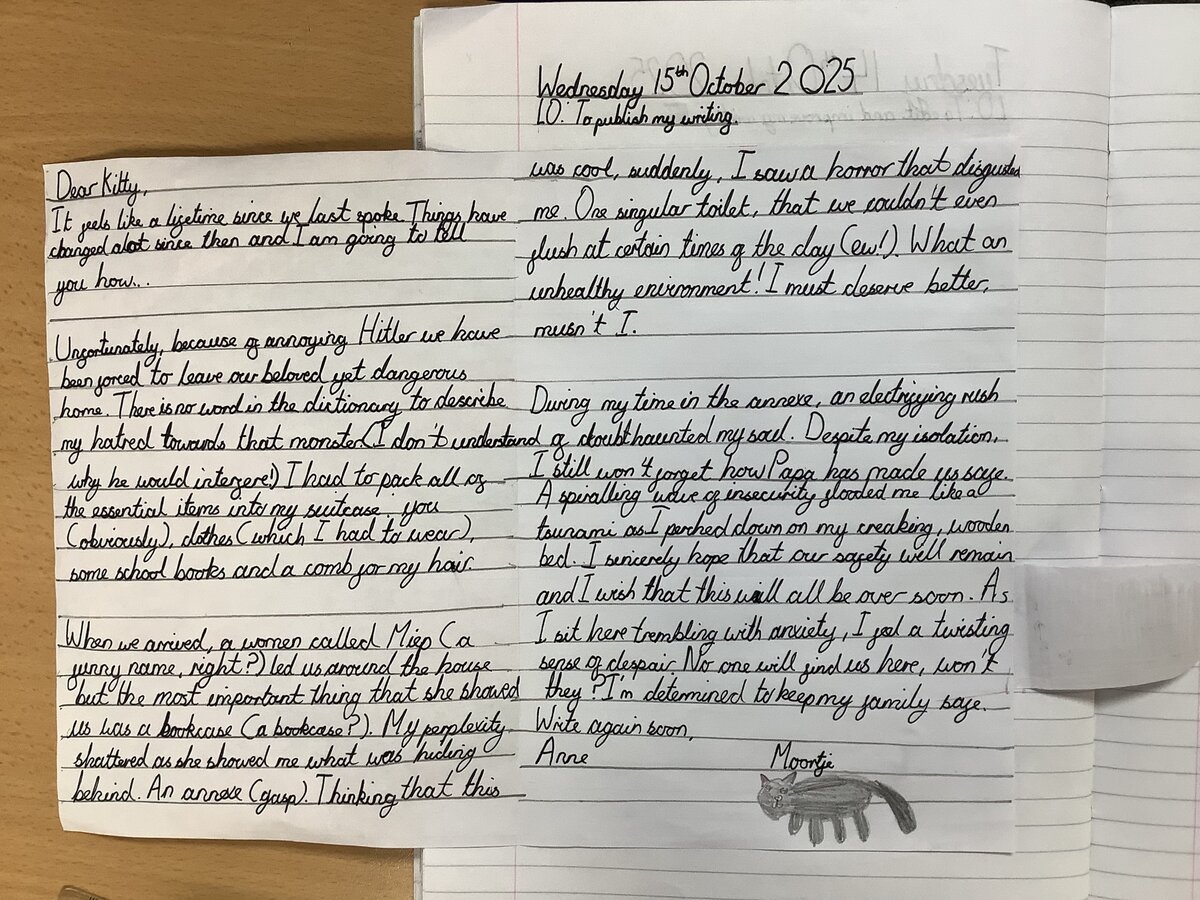 Wednesday 15th October 2025
LO: To publish my writing.
Dear Kitty,
It feels like a lifetime since we last spoke. Things have
changed alot since then and I am going to tell
you how...
Unfortunately, because of annoying Hitler we have
been forced to leave our beloved yet dangerous
home. There is no word in the dictionary to describe
my hatred towards that monster (I don't understand
why he would interfere!) I had to pack all of
the essential items into my suitcase. you
(obviously), clothes (which I had to wear),
some school books and a comb for my hair.
When we arrived, a women called Miep (a
funny name, right?) led us around the house
but the most important thing that she showed
us was a bookcase (a bookcase?). My perplexity
shattered as she showed me what was hiding
behind. An annexe (gasp). Thinking that this
was cool, suddenly, I saw a horror that disgusted
me. One singular toilet, that we couldn't even
flush at certain times of the day (ew!). What an
unhealthy environment! I must deserve better,
musn't I.
During my time in the annexe, an electrifying rush
of doubt haunted my soul. Despite my isolation,
I still won't forget how Papa has made us safe.
A spiralling wave of insecurity flooded me like a
tsunami as I perched down on my creaking, wooden
bed. I sincerely hope that our safety will remain
and I wish that this will all be over soon. As
I sit here trembling with anxiety, I feel a twisting
sense of despair. No one will find us here, won't
they? I'm determined to keep my family safe.
Write again soon,
Anne
Moortje